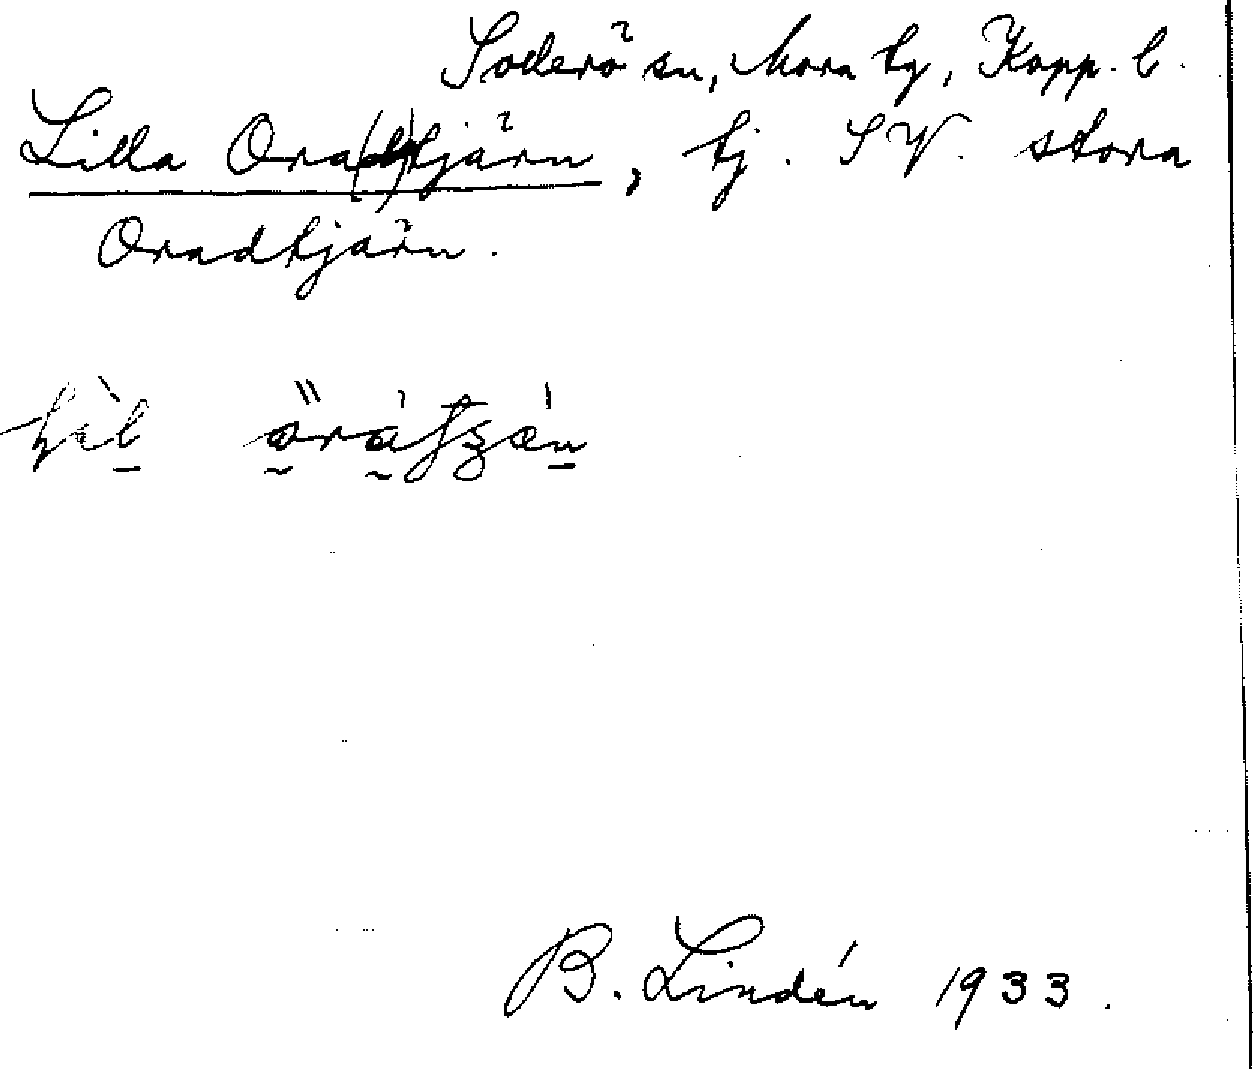 Sollerö sn, Mora tg, Kopp. l.
Lilla Ora(d)tjärn, tj. SV. stora
Oradtjärn.
B. Lindén 1933.